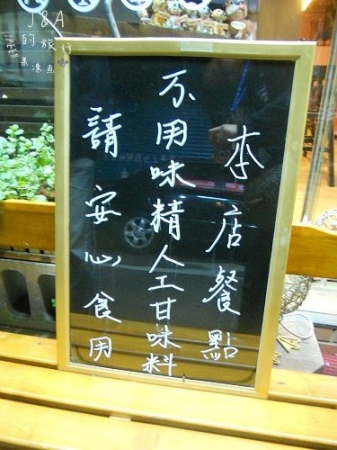 本店餐點
不用味精人工甘味料
請安心食用
J&A
的旅行